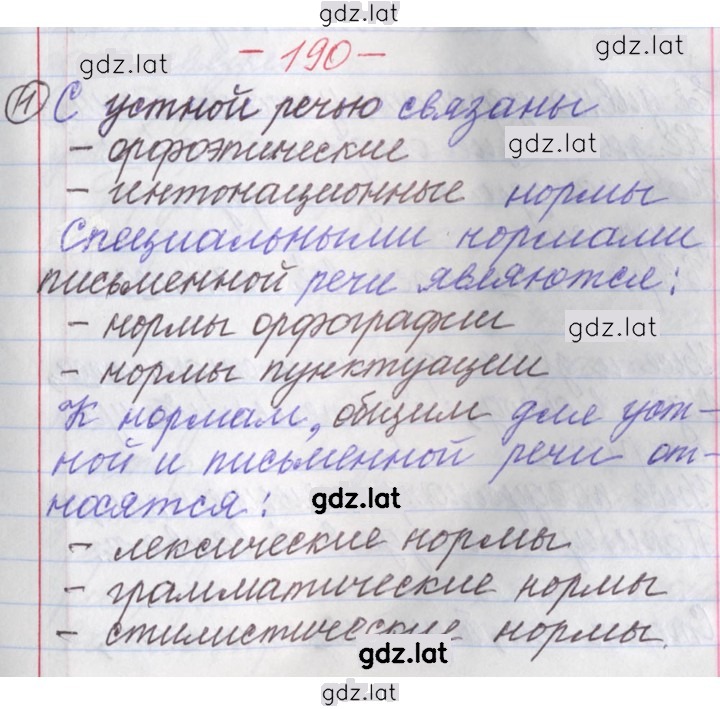 gdz.lat
- 190 -
gdz.lat
gdz.lat
1) С устной речью связаны
gdz.lat
- орфоэпические
- интонационные нормы
Специальными нормами
письменной речи являются:
- нормы орфографии
gdz.lat
- нормы пунктуации
К нормам, общим для уст-
ной и письменной речи от-
носятся:
gdz.lat
- лексические нормы
- грамматические нормы
- стилистические нормы.
gdz.lat
gdz.lat